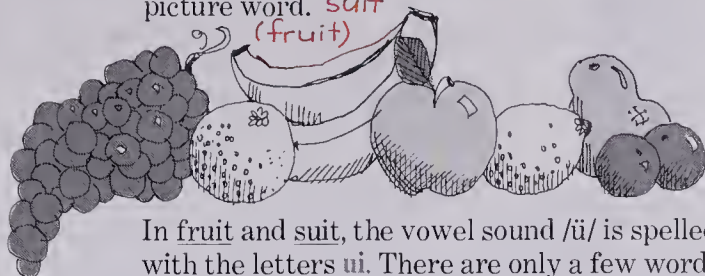 picture word. suit
(fruit)
In fruit and suit, the vowel sound /ü/ is spelled
with the letters ui. There are only a few words